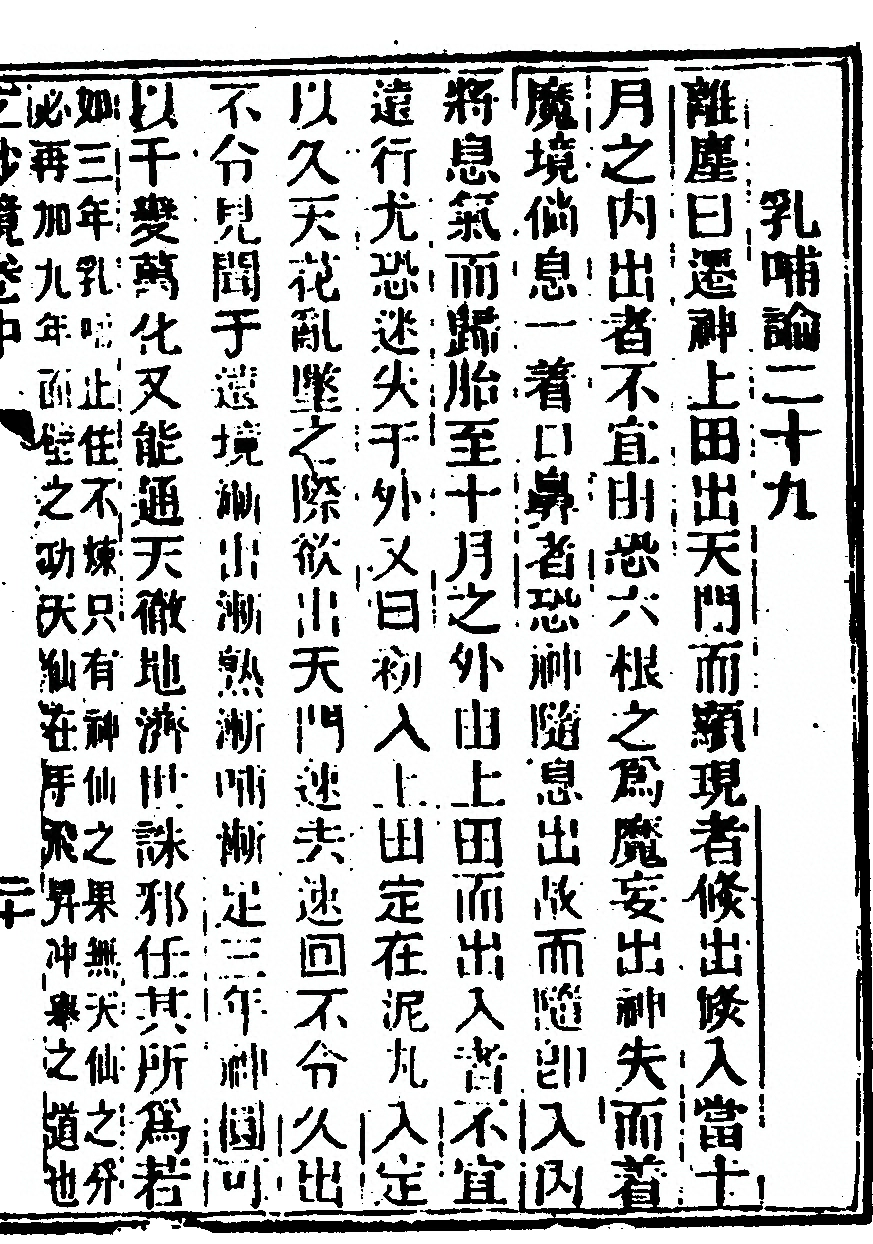 乳哺論二十九
離塵曰遷神上田出天門而顯現者倐出倐入當十
月之内出者不宜出恐六根之爲魔妄出神失而着
魔境倘息一着口鼻者恐神隨息出故而隨卽入内
將息氣而歸胎至十月之外由上田而出入者不宜
遠行尤恐迷失于外又曰初入上田定在泥丸入定
以久天花亂墜之際欲出天門速去速回不令久出
不令見聞于遠境漸出漸熟漸哺漸足三年神圓可
以千變萬化又能通天徹地濟世誅邪任其所爲若
如三年乳哺止住不煉只有神仙之果無天仙之分
必再加九年面壁之功天仙在手飛昇冲舉之道也
之妙境卷中 二十